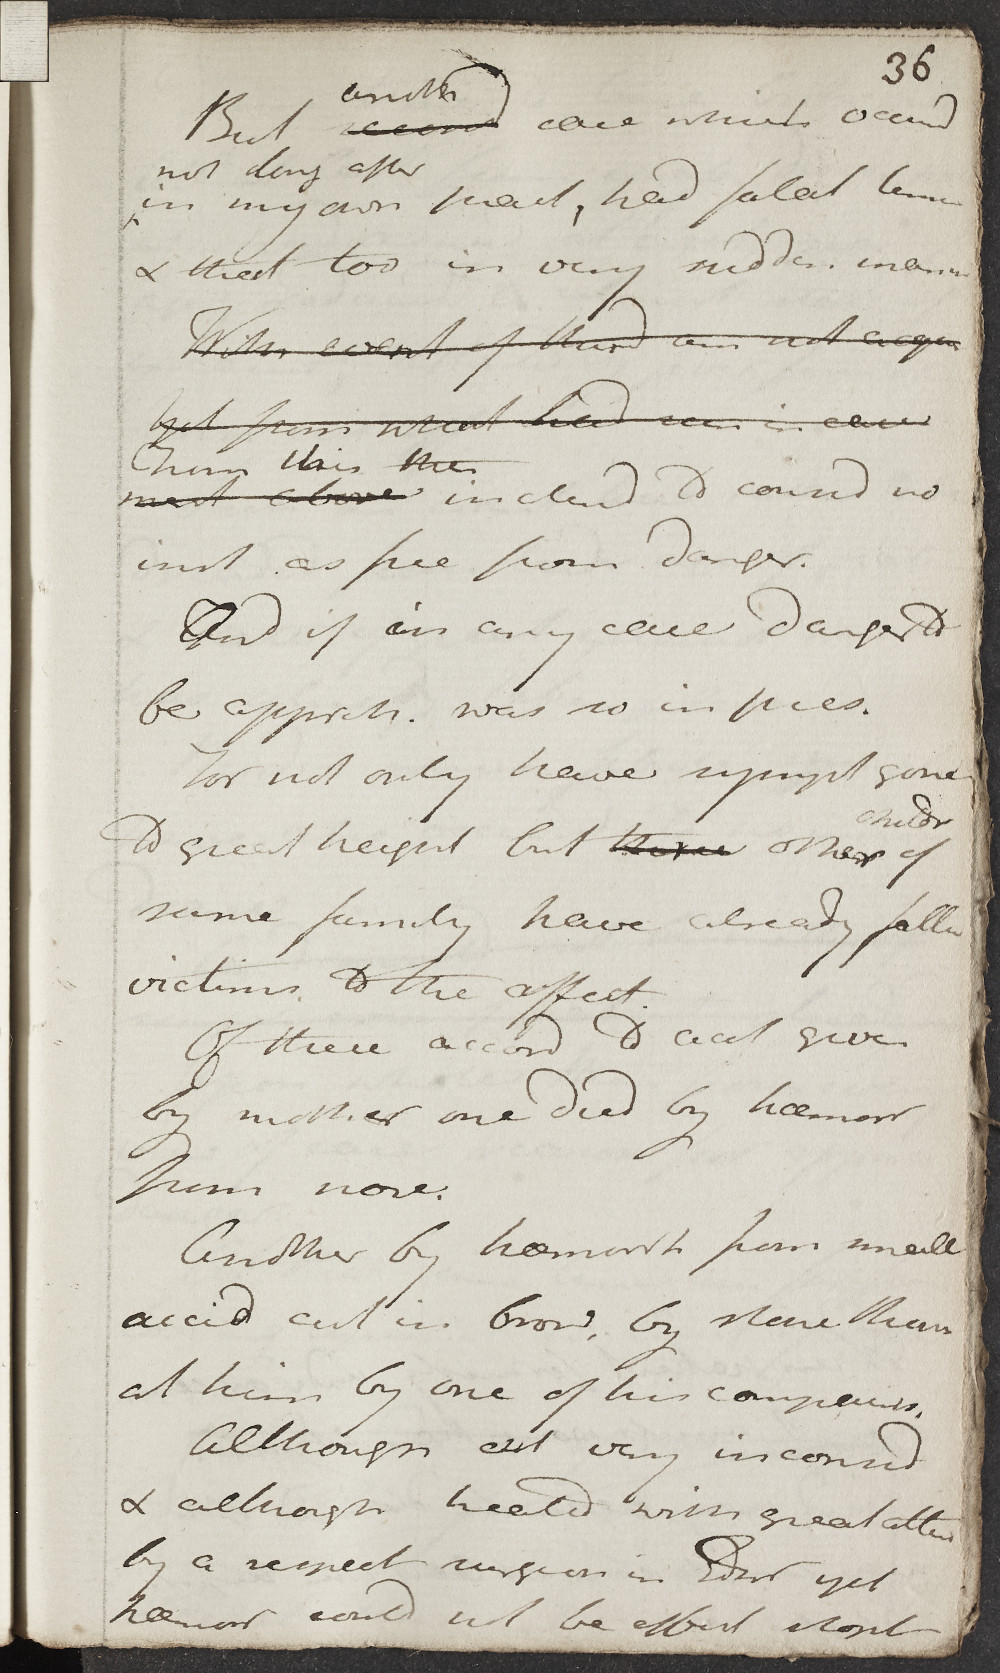 36
another
But second case which occurd
not long after
in my own pract, had fatal term
& that too in very sudden mann
With event of third am not acqu
yet from what had seen in case
From this then
next above inclind to consid no
inst as free from danger.
And if in any case danger to
be appreh. was so in pres.
For not only have sympt gone
childr
to great height but three other of
same family have already falln
victims to the affect.
Of these accord to acct given
by mother one died by hæmorr
from nose.
Another by hæmorrh from small
accid cut in brow, by stone thrown
at him by one of his compan.
Although cut very inconsid
& although treated with great atten
by a respect surgeon in Edinr yet
hæmorr could not be effect stopt